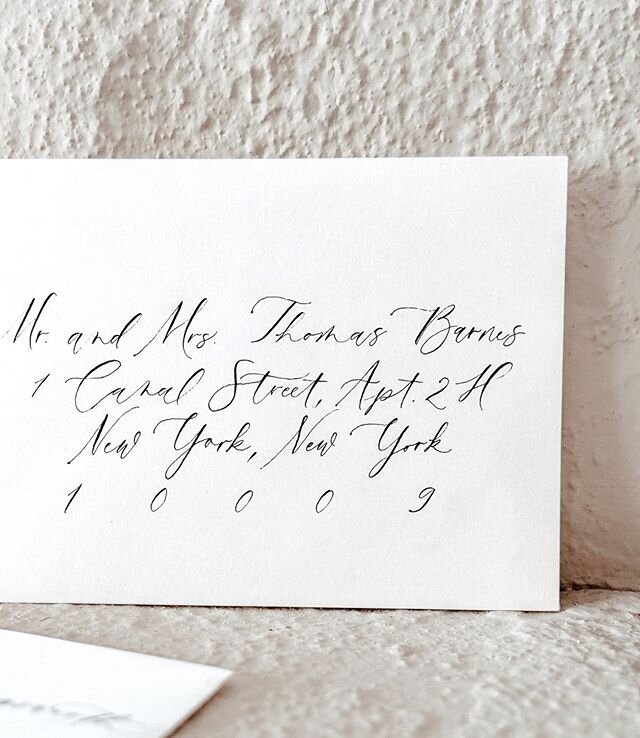 Mr. and Mrs. Thomas Barnes
1 Canal Street, Apt. 2H
New York, New York
1 0 0 0 9